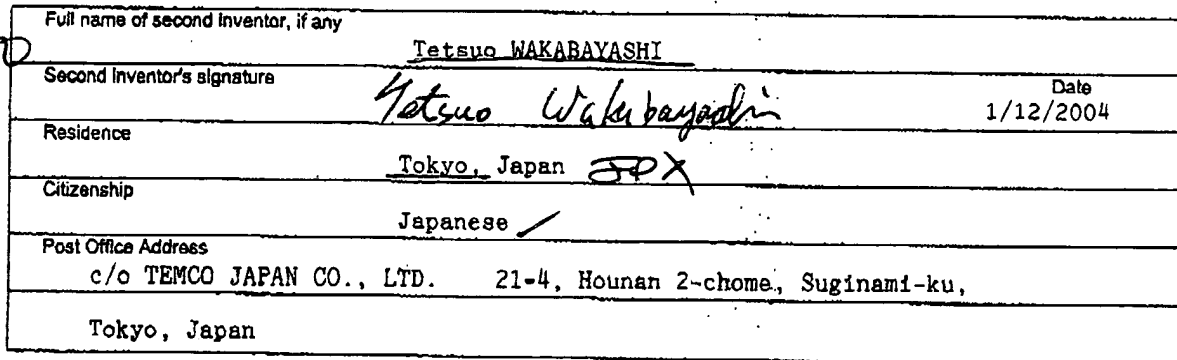 Full name of second inventor, if any
Tetsuo WAKABAYASHI
Second inventor's signature
Tetsuo Wakabayashi
Date
1/12/2004
Residence
Tokyo, Japan JPX
Citizenship
Japanese
Post Office Address
c/o TEMCO JAPAN CO., LTD. 21-4, Hounan 2-chome, Suginami-ku,
Tokyo, Japan